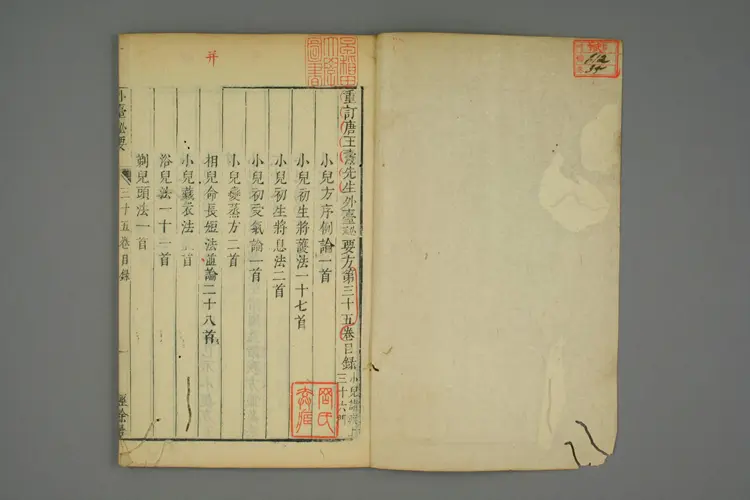 重訂唐王燾先生外臺秘要方第三十五卷目錄
小兒方序例論一首
小兒初生將護法一十七首
小兒初生將息法二首
小兒初受氣論一首
小兒變蒸方二首
相兒命長短法並論二十八首
小兒藏衣法首
浴兒法一十一首
剃兒頭法一首
外臺秘要
三十五卷目錄
一
經餘居
并